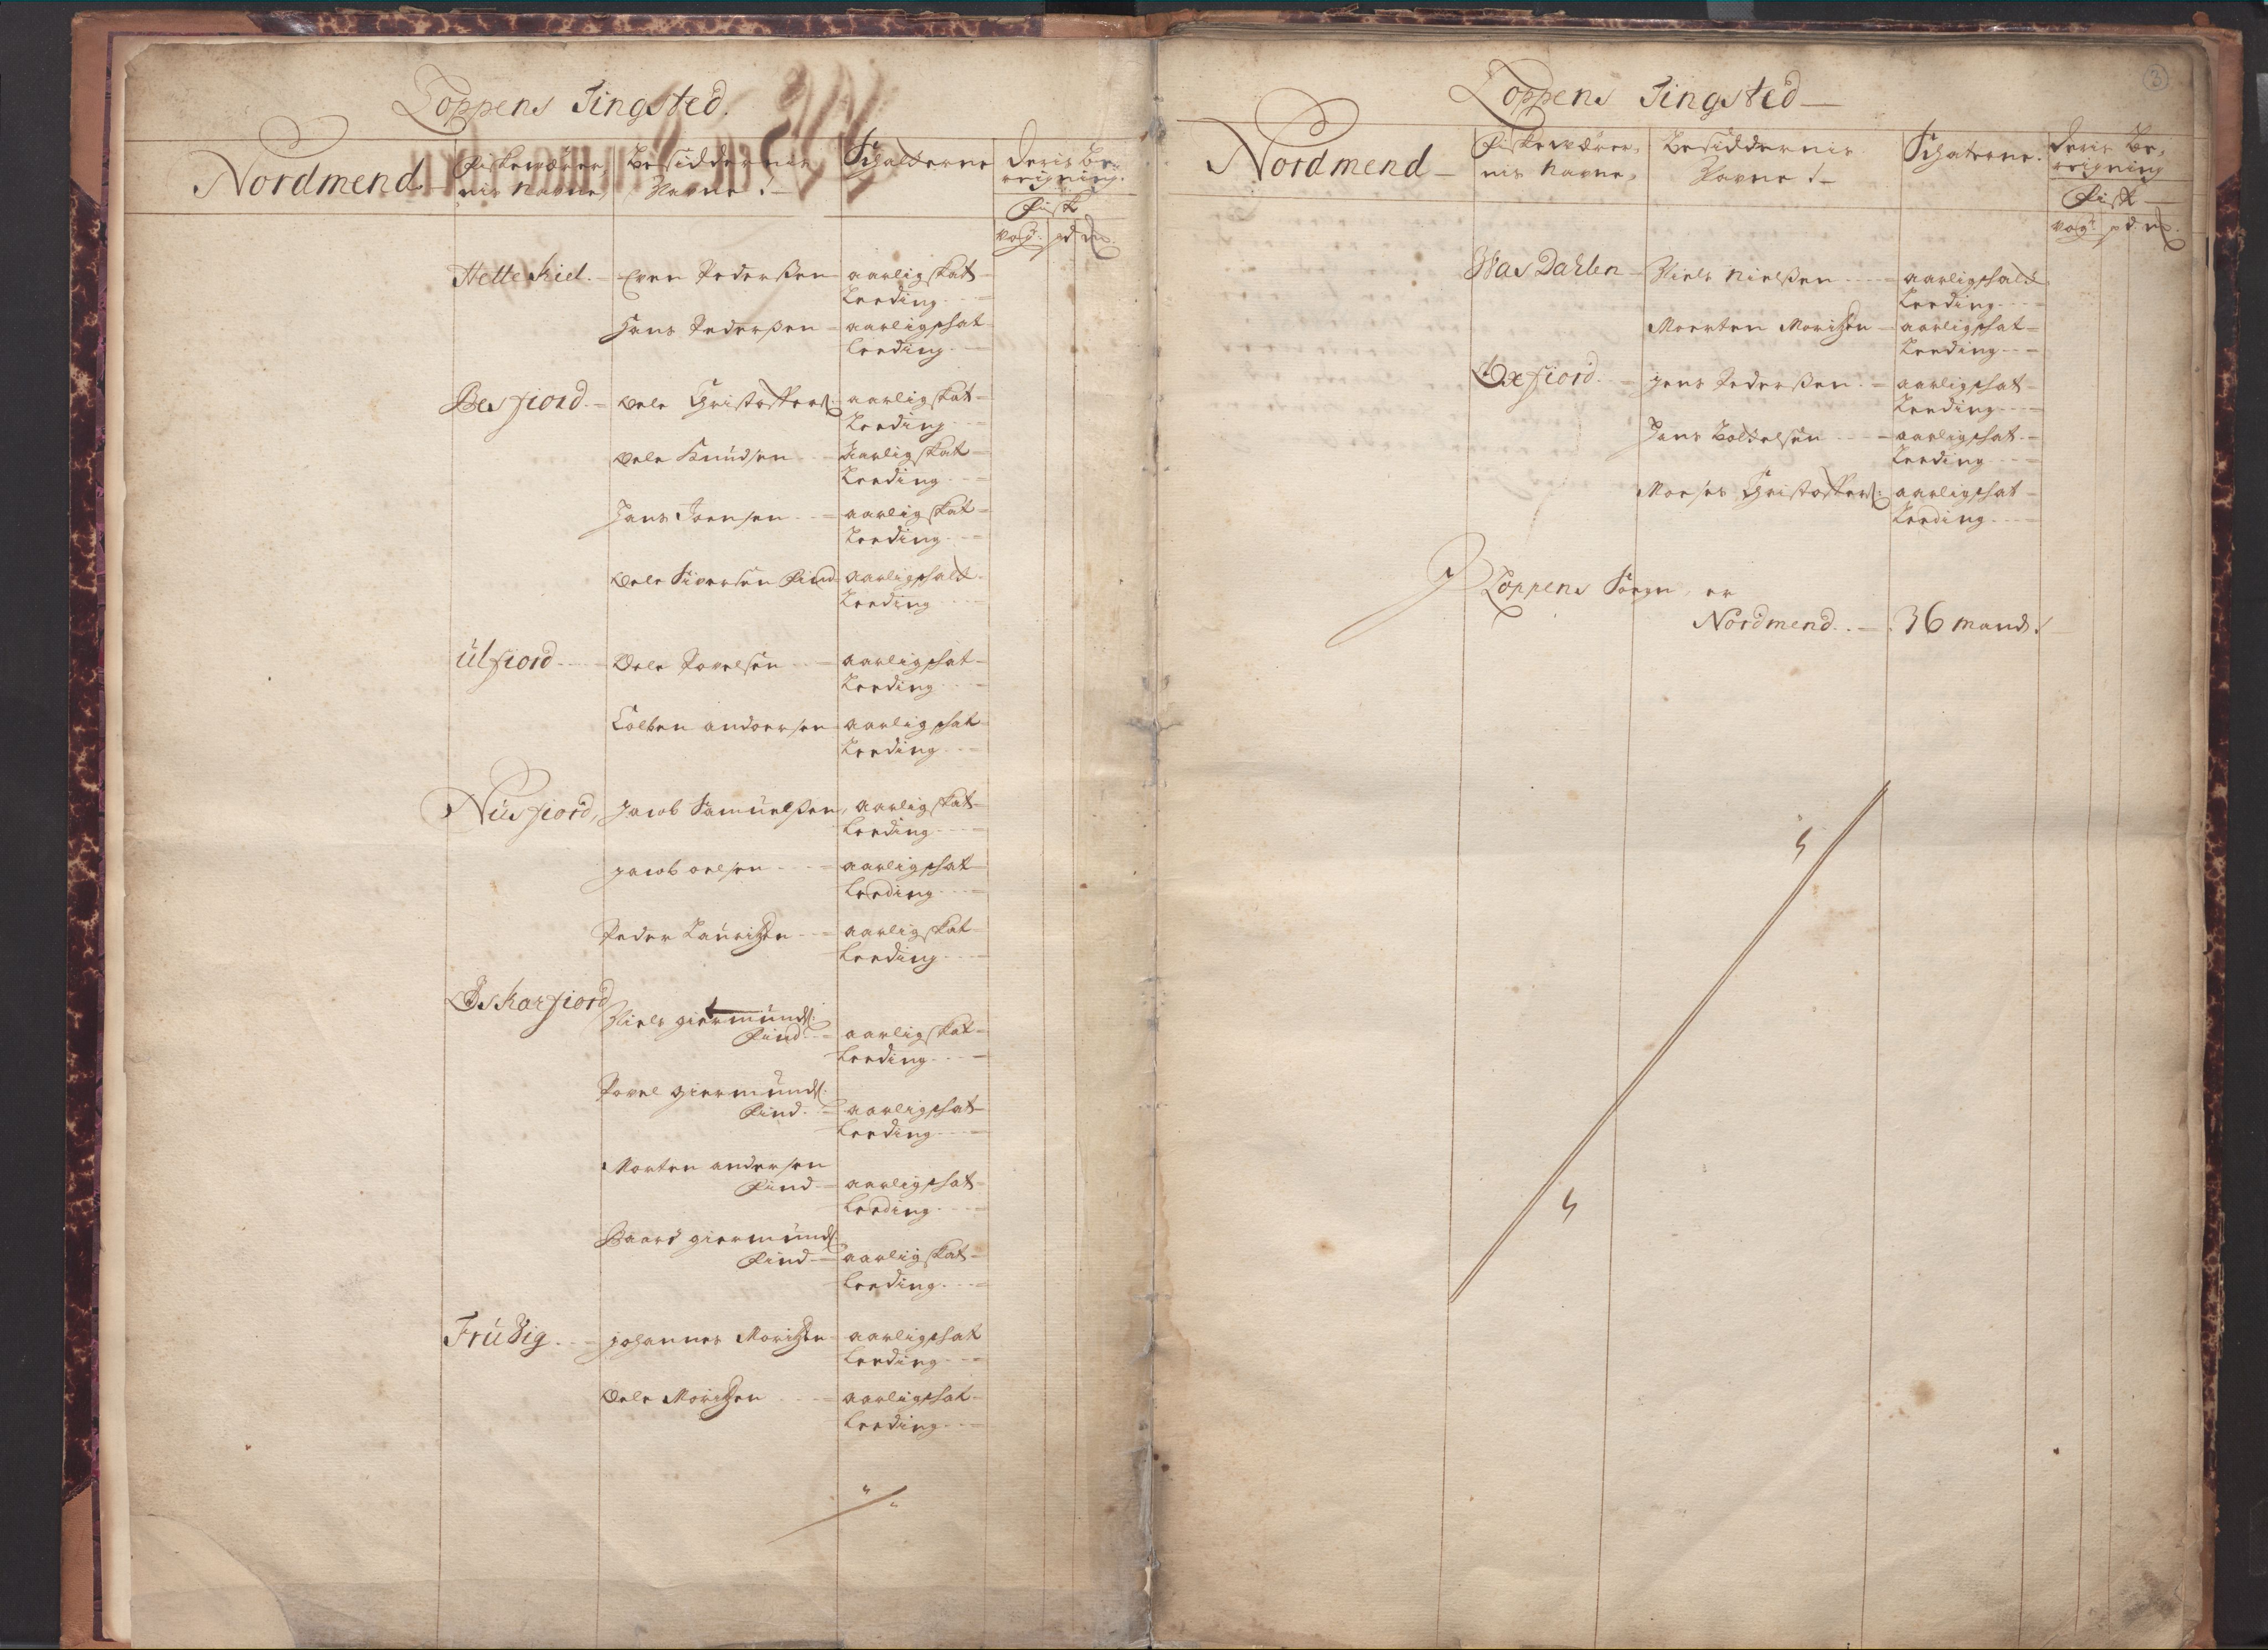 Loppens Tingsted.
Nordmend.
Fiskewærer,
nis Navne,
Besiddernis
Navne !
Schatterne
Deris Be-
reigning.
Fisk
Vog: pd m
Hetteskiel. Even Pederßen aarlig skat
Leeding
Hans Pederßen aarlig schat
Leeding
Besfiord. Oele Christoffers: aarlig skat
Leeding
Oele Knudsen aarlig skat
Leeding
Hans Joensen aarlig skat
Leeding
Oele Siversen Find aarlig schatt
Leeding
Ulfiord Oele Povelsen aarlig schat
Leeding
Colben andersen aarlig schat
Leeding
Nusfiord, Jacob Samuelßen, aarlig skat
Leeding
Jacob oelsen aarlig schat
Leeding
Peder Lauritzen aarlig skat
Leeding
Øskarfiord
Niels giermunds:
Find aarlig skat
Leeding
Povel giermunds:
Find aarlig schat
Leeding
Morten andersen
Find aarlig schat
Leeding
Baard giermunds:
Find aarlig skat
Leeding
Fruvig Johannes Moritzen aarlig schat
Leeding
Oele Moritzen aarlig schat
Leeding
3
Loppens Tingsted
Nordmend
Fiskewærer,
nis Navne,
Besiddernis
Navne !
Schaterne.
Deris Be,
reigning
Fisk
Vog: pd m
Wasdahlen Niels Nielßen aarlig schatt
Leeding
Morten Moritzen aarlig schat
Leeding
Øxfiord. Jens Pederßen aarlig schat
Leeding
Hans Boldelsen aarlig schat
Leeding
Moeses Christoffers: aarlig schat
Leeding
J Loppens Sogn, er
Nordmend. 36 mand.